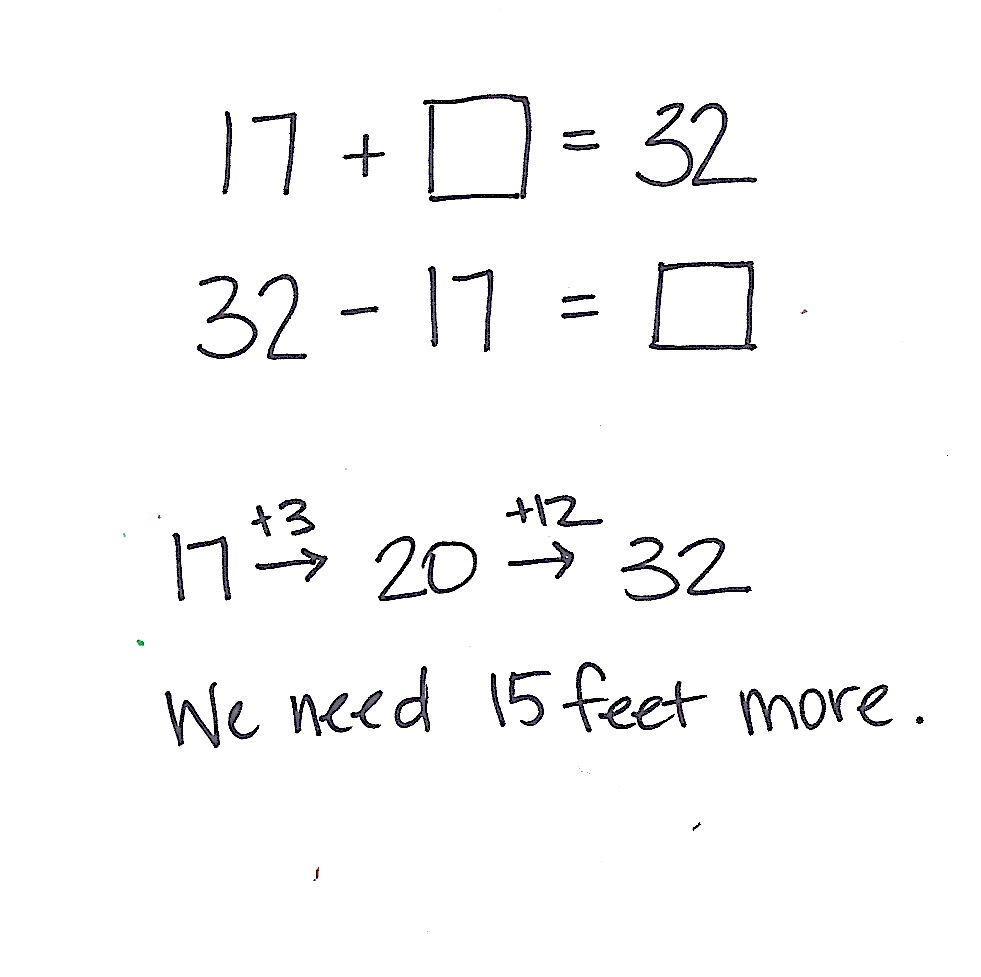 17 + □ = 32
32 - 17 = □
+3 +12
17 → 20 → 32
We need 15 feet more.